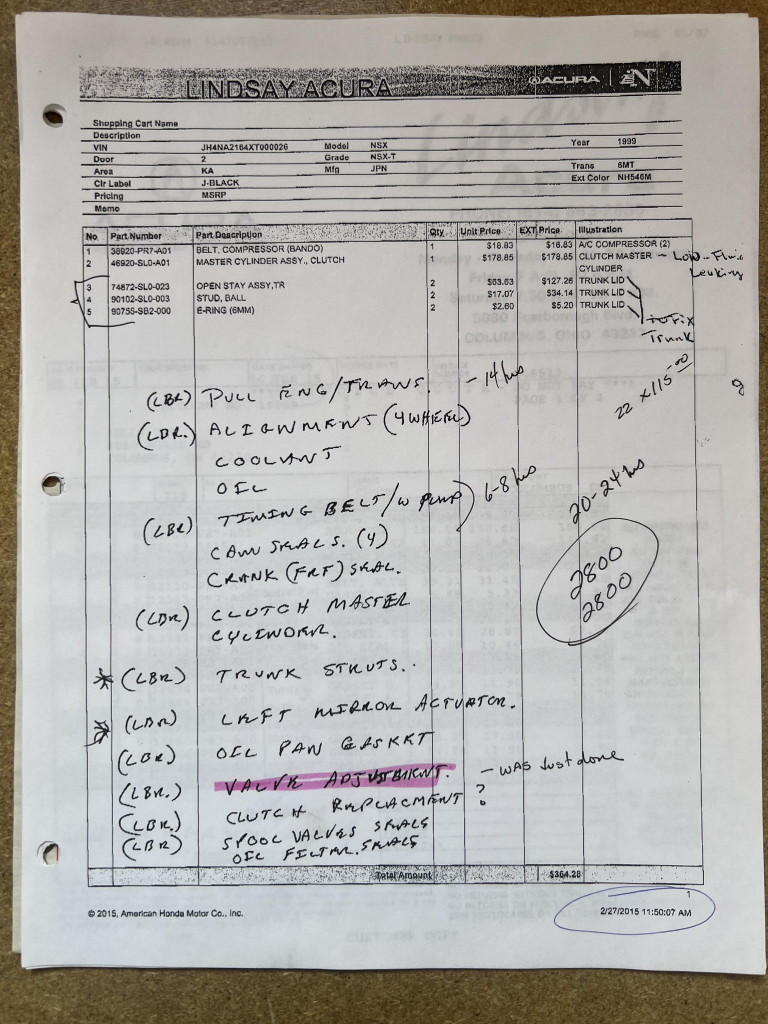 LINDSAY ACURA
ACURA
Shopping Cart Name
Description
VIN JH4NA2164XT000026 Model NSX Year 1999
Door 2 Grade NSX-T
Area KA Mfg JPN Trans 6MT
Clr Label J-BLACK Ext Color NH546M
Pricing MSRP
Memo
No Part Number Part Description Qty Unit Price EXT Price Illustration
1 38920-PR7-A01 BELT, COMPRESSOR (BANDO) 1 $18.83 $18.83 A/C COMPRESSOR (2)
2 46920-SL0-A01 MASTER CYLINDER ASSY., CLUTCH 1 $178.85 $178.85 CLUTCH MASTER - Low-Fluid
CYLINDER Leaking
3 74872-SL0-023 OPEN STAY ASSY,TR 2 $63.63 $127.26 TRUNK LID
4 90102-SL0-003 STUD, BALL 2 $17.07 $34.14 TRUNK LID
5 90755-SB2-000 E-RING (6MM) 2 $2.60 $5.20 TRUNK LID
to Fix
Trunk
(LBR) PULL ENG/TRANS. - 14 hrs
22 x 115.00
(LBR.) ALIGNMENT (4 WHEEL)
COOLANT
OIL
(LBR) TIMING BELT/W PUMP 6-8 hrs
20-24 hrs
CAM SEALS. (4)
CRANK (FRT) SEAL.
2800
2800
(LBR) CLUTCH MASTER
CYLINDER.
(LBR) TRUNK STRUTS..
(LBR) LEFT MIRROR ACTUATOR.
(LBR) OIL PAN GASKET
(LBR.) VALVE ADJUSTMENT. - was Just done
(LBR) CLUTCH REPLACMENT ?
(LBR) SPOOL VALVES SEALS
OIL FILTER. SEALS
Total Amount $364.28
1
© 2015, American Honda Motor Co., Inc. 2/27/2015 11:50:07 AM